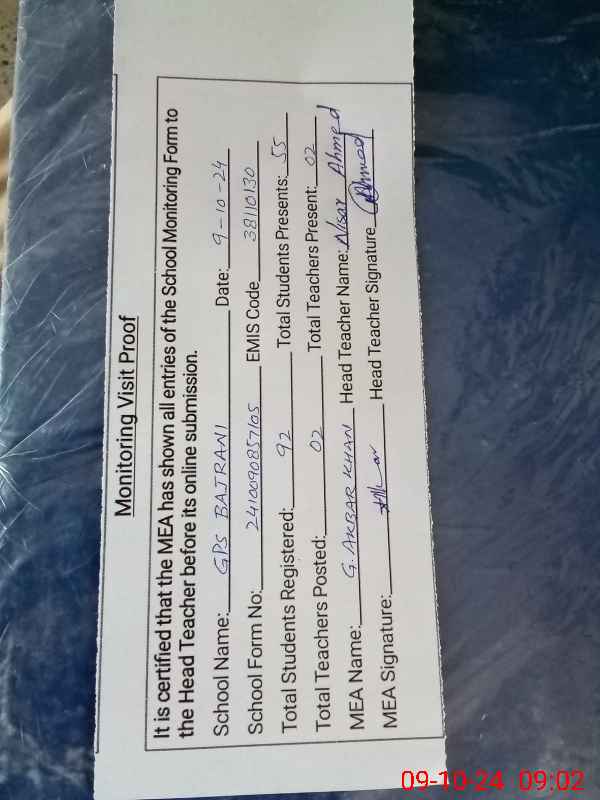 Monitoring Visit Proof
It is certified that the MEA has shown all entries of the School Monitoring Form to
the Head Teacher before its online submission.
School Name: GPS BAJRANI Date: 9-10-24
School Form No: 2410090857105 EMIS Code 38110130
Total Students Registered: 92 Total Students Presents: 55
Total Teachers Posted: 02 Total Teachers Present: 02
MEA Name: G. AKBAR KHAN Head Teacher Name: Nisar Ahmed
MEA Signature: Head Teacher Signature Ahmed
09-10-24 09:02